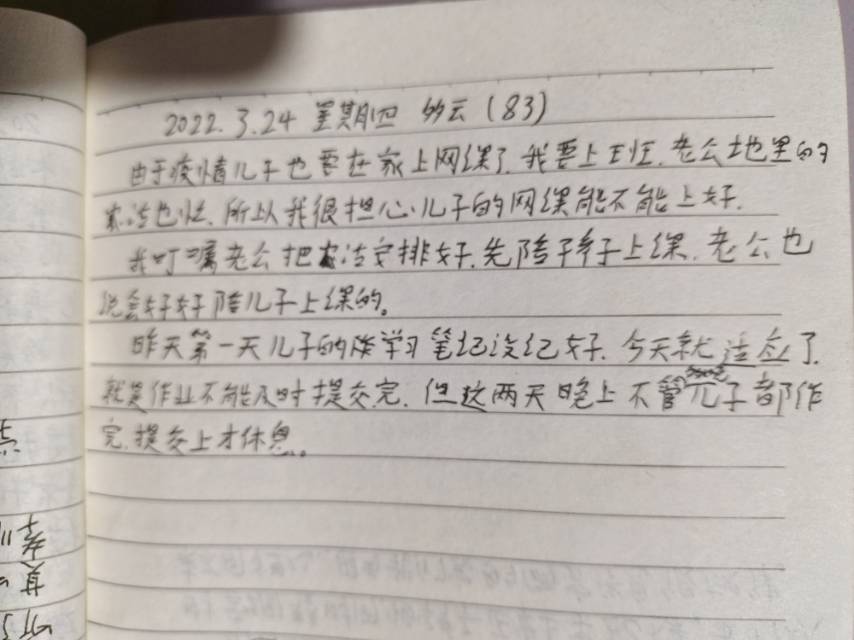 2022.3.24 星期四 多云(83)
由于疫情儿子也要在家上网课了.我要上班.老公地里的
农活也忙.所以我很担心儿子的网课能不能上好.
我叮嘱老公把农活安排好.先陪孩子上课.老公也
说会好好陪儿子上课的。
昨天第一天儿子的学习笔记没记好.今天就适应了.
就是作业不能及时提交完.但这两天晚上不管儿子都作
完.提交上才休息。